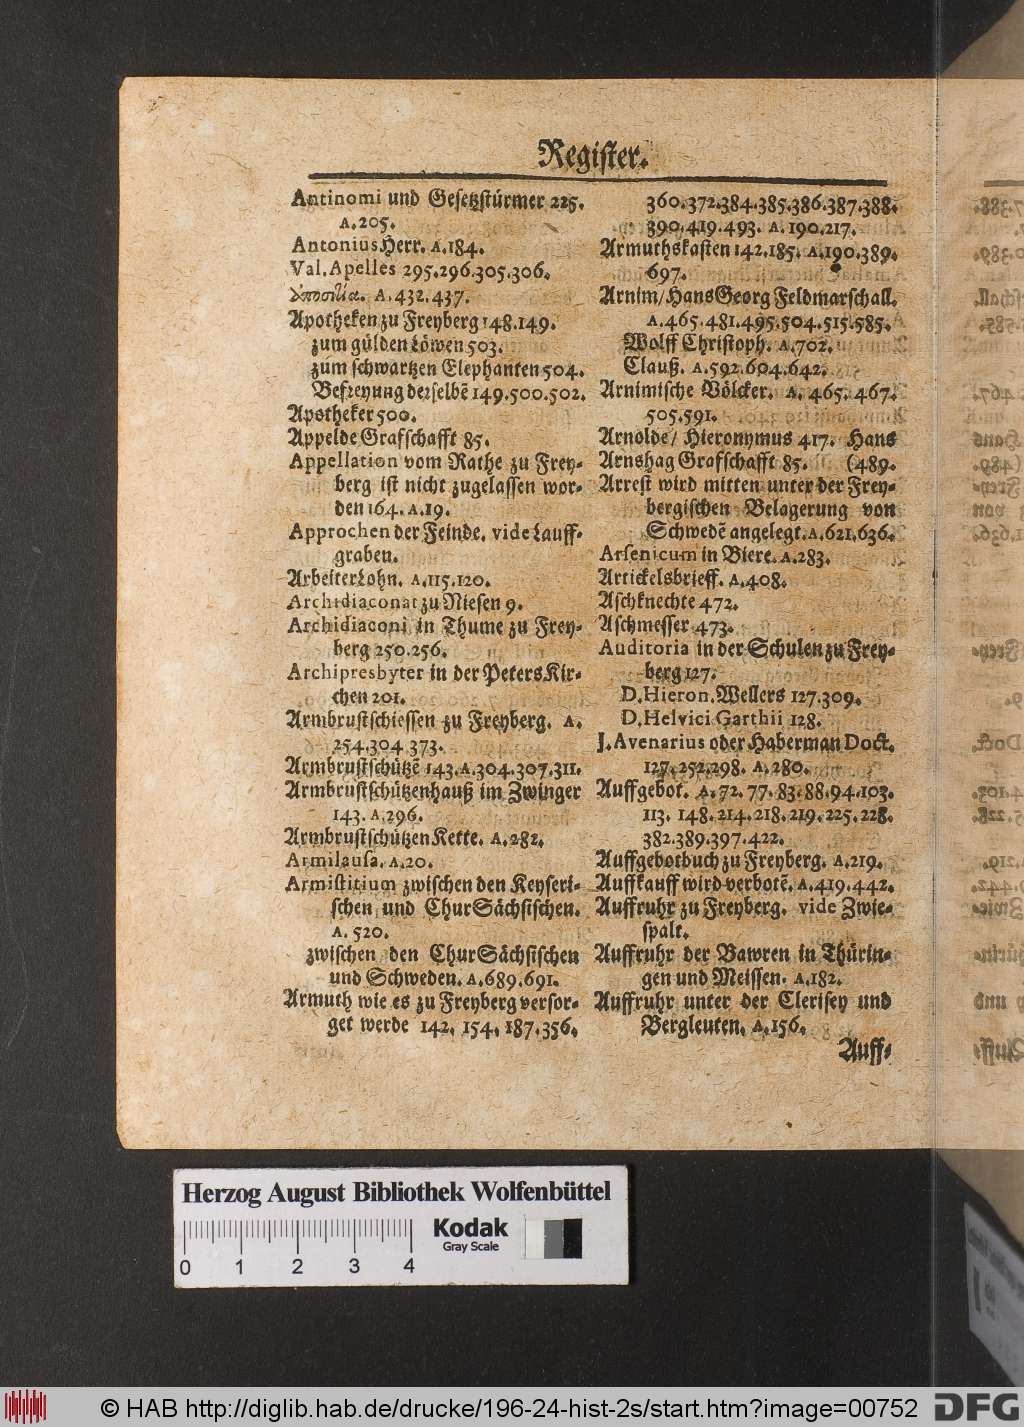 Register.
Antinomi und Gesetzstürmer 225.
A.205.
Antonius Herr. A.184.
Val. Apelles 295.296.305.306.
A.432.437.
Apotheken zu Freyberg 148.149.
zum gülden Löwen 503.
zum schwartzen Elephanten 504.
Befreyung derselbẽ 149.500.502.
Apotheker 500.
Appelde Grafschafft 85.
Appellation vom Rathe zu Frey-
berg ist nicht zugelassen wor-
den 164. A.19.
Approchen der Feinde. vide Lauff-
graben.
Arbeiter Lohn. A.115.120.
Archidiaconat zu Niesen 9.
Archidiaconi in Thume zu Frey-
berg 250.256.
Archipresbyter in der Peters Kir-
chen 201.
Armbrustschiessen zu Freyberg. A.
254.304.373.
Armbrustschützẽ 143. A.304.307.311.
Armbrustschützenhauß im Zwinger
143. A.296.
Armbrustschützen Kette. A.282.
Armilausa. A.20.
Armistitium zwischen den Keyseri-
schen und Chur Sächsischen.
A. 520.
zwischen den Chur Sächsischen
und Schweden. A.689.691.
Armuth wie es zu Freyberg versor-
get werde 142. 154. 187.356.
360.372.384.385.386.387.388.
390.419.493. A.190.217.
Armuthskasten 142.185. A.190.389.
697.
Arnim/ Hans Georg Feldmarschall.
A.465.481.495.504.515.585.
Wolff Christoph. A.702.
Clauß. A.592.604.642.
Arnimische Völcker. A. 465. 467.
505.591.
Arnolde/ Hieronymus 417. Hans
Arnshag Grafschafft 85. (489.
Arrest wird mitten unter der Frey-
bergischen Belagerung von
Schwedẽ angelegt. A.621.636.
Arsenicum in Biere. A.283.
Artickelsbrieff. A.408.
Aschknechte 472.
Aschmesser 473.
Auditoria in der Schulen zu Frey-
berg 127.
D. Hieron. Wellers 127.309.
D. Helvici Garthii 128.
J. Avenarius oder Haberman Doct.
127.252.298. A.280.
Auffgebot. A.72.77.83.88.94.103.
113. 148.214.218.219.225.228.
382.389.397.422.
Auffgebotbuch zu Freyberg. A.219.
Auffkauff wird verbotẽ. A.419.442.
Auffruhr zu Freyberg. vide Zwie-
spalt.
Auffruhr der Bawren in Thürin-
gen und Meissen. A.182.
Auffruhr unter der Clerisey und
Bergleuten. A.156.
Auff-
Herzog August Bibliothek Wolfenbüttel
Kodak
Gray Scale
0 1 2 3 4
© HAB http://diglib.hab.de/drucke/196-24-hist-2s/start.htm?image=00752
DFG